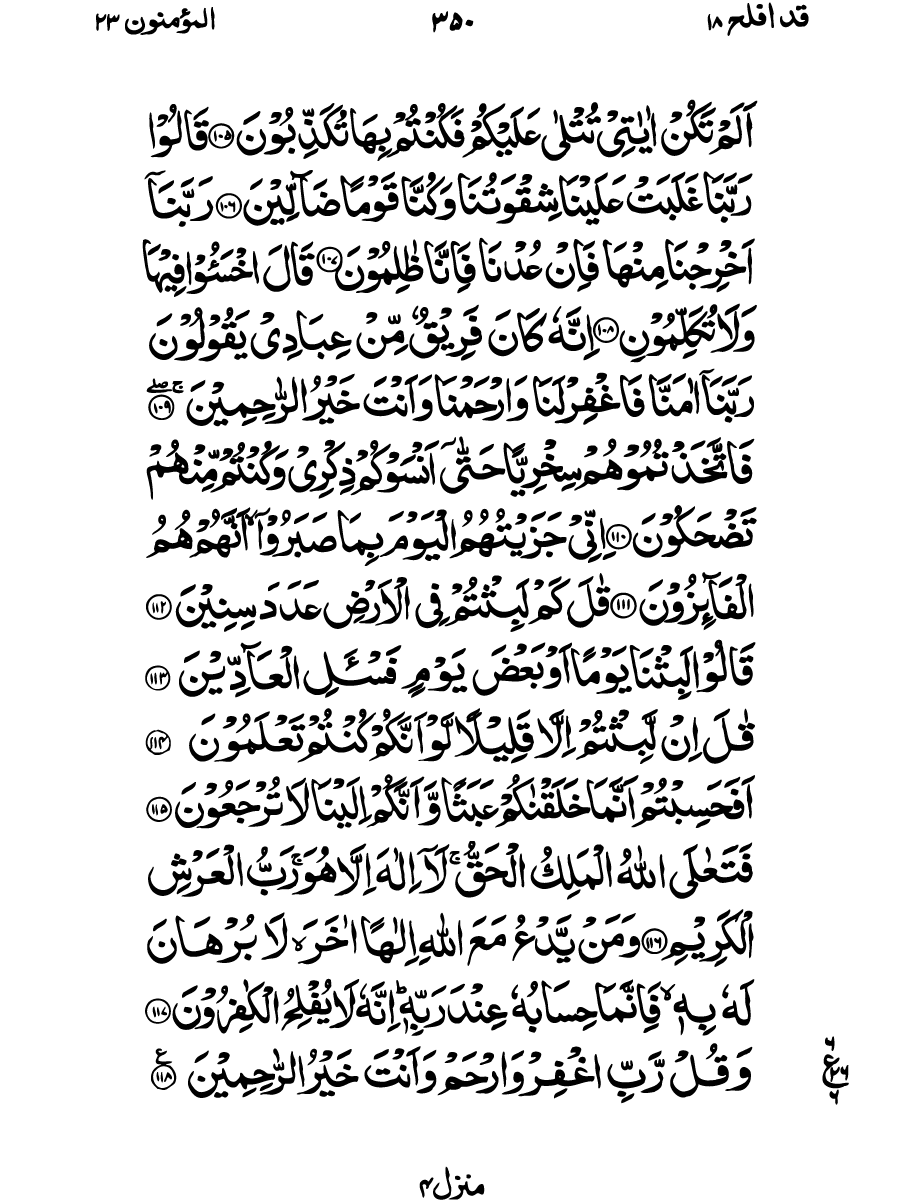 قد افلح ۱۸ ۳۵۰ المؤمنون ۲۳
اَلَمْ تَكُنْ اٰيٰتِيْ تُتْلٰى عَلَيْكُمْ فَكُنْتُمْ بِهَا تُكَذِّبُوْنَ ۝۱۰۵ قَالُوْا
رَبَّنَا غَلَبَتْ عَلَيْنَا شِقْوَتُنَا وَكُنَّا قَوْمًا ضَآلِّيْنَ ۝۱۰۶ رَبَّنَآ
اَخْرِجْنَا مِنْهَا فَاِنْ عُدْنَا فَاِنَّا ظٰلِمُوْنَ ۝۱۰۷ قَالَ اخْسَـُٔوْا فِيْهَا
وَلَا تُكَلِّمُوْنِ ۝۱۰۸ اِنَّهٗ كَانَ فَرِيْقٌ مِّنْ عِبَادِيْ يَقُوْلُوْنَ
رَبَّنَآ اٰمَنَّا فَاغْفِرْ لَنَا وَارْحَمْنَا وَاَنْتَ خَيْرُ الرّٰحِمِيْنَ ۝۱۰۹ ۚ ۖ
فَاتَّخَذْتُمُوْهُمْ سِخْرِيًّا حَتّٰٓى اَنْسَوْكُمْ ذِكْرِيْ وَكُنْتُمْ مِّنْهُمْ
تَضْحَكُوْنَ ۝۱۱۰ اِنِّيْ جَزَيْتُهُمُ الْيَوْمَ بِمَا صَبَرُوْٓا ۙ اَنَّهُمْ هُمُ
الْفَآئِزُوْنَ ۝۱۱۱ قٰلَ كَمْ لَبِثْتُمْ فِي الْاَرْضِ عَدَدَ سِنِيْنَ ۝۱۱۲
قَالُوْا لَبِثْنَا يَوْمًا اَوْ بَعْضَ يَوْمٍ فَسْـَٔلِ الْعَآدِّيْنَ ۝۱۱۳
قٰلَ اِنْ لَّبِثْتُمْ اِلَّا قَلِيْلًا لَّوْ اَنَّكُمْ كُنْتُمْ تَعْلَمُوْنَ ۝۱۱۴
اَفَحَسِبْتُمْ اَنَّمَا خَلَقْنٰكُمْ عَبَثًا وَّاَنَّكُمْ اِلَيْنَا لَا تُرْجَعُوْنَ ۝۱۱۵
فَتَعٰلَى اللّٰهُ الْمَلِكُ الْحَقُّ ۚ لَآ اِلٰهَ اِلَّا هُوَ ۚ رَبُّ الْعَرْشِ
الْكَرِيْمِ ۝۱۱۶ وَمَنْ يَّدْعُ مَعَ اللّٰهِ اِلٰهًا اٰخَرَ ۙ لَا بُرْهَانَ
لَهٗ بِهٖ ۙ فَاِنَّمَا حِسَابُهٗ عِنْدَ رَبِّهٖ ؕ اِنَّهٗ لَا يُفْلِحُ الْكٰفِرُوْنَ ۝۱۱۷
وَقُلْ رَّبِّ اغْفِرْ وَارْحَمْ وَاَنْتَ خَيْرُ الرّٰحِمِيْنَ ۝۱۱۸ ع
۶ ع ۲۶ ۶
منزل ۴